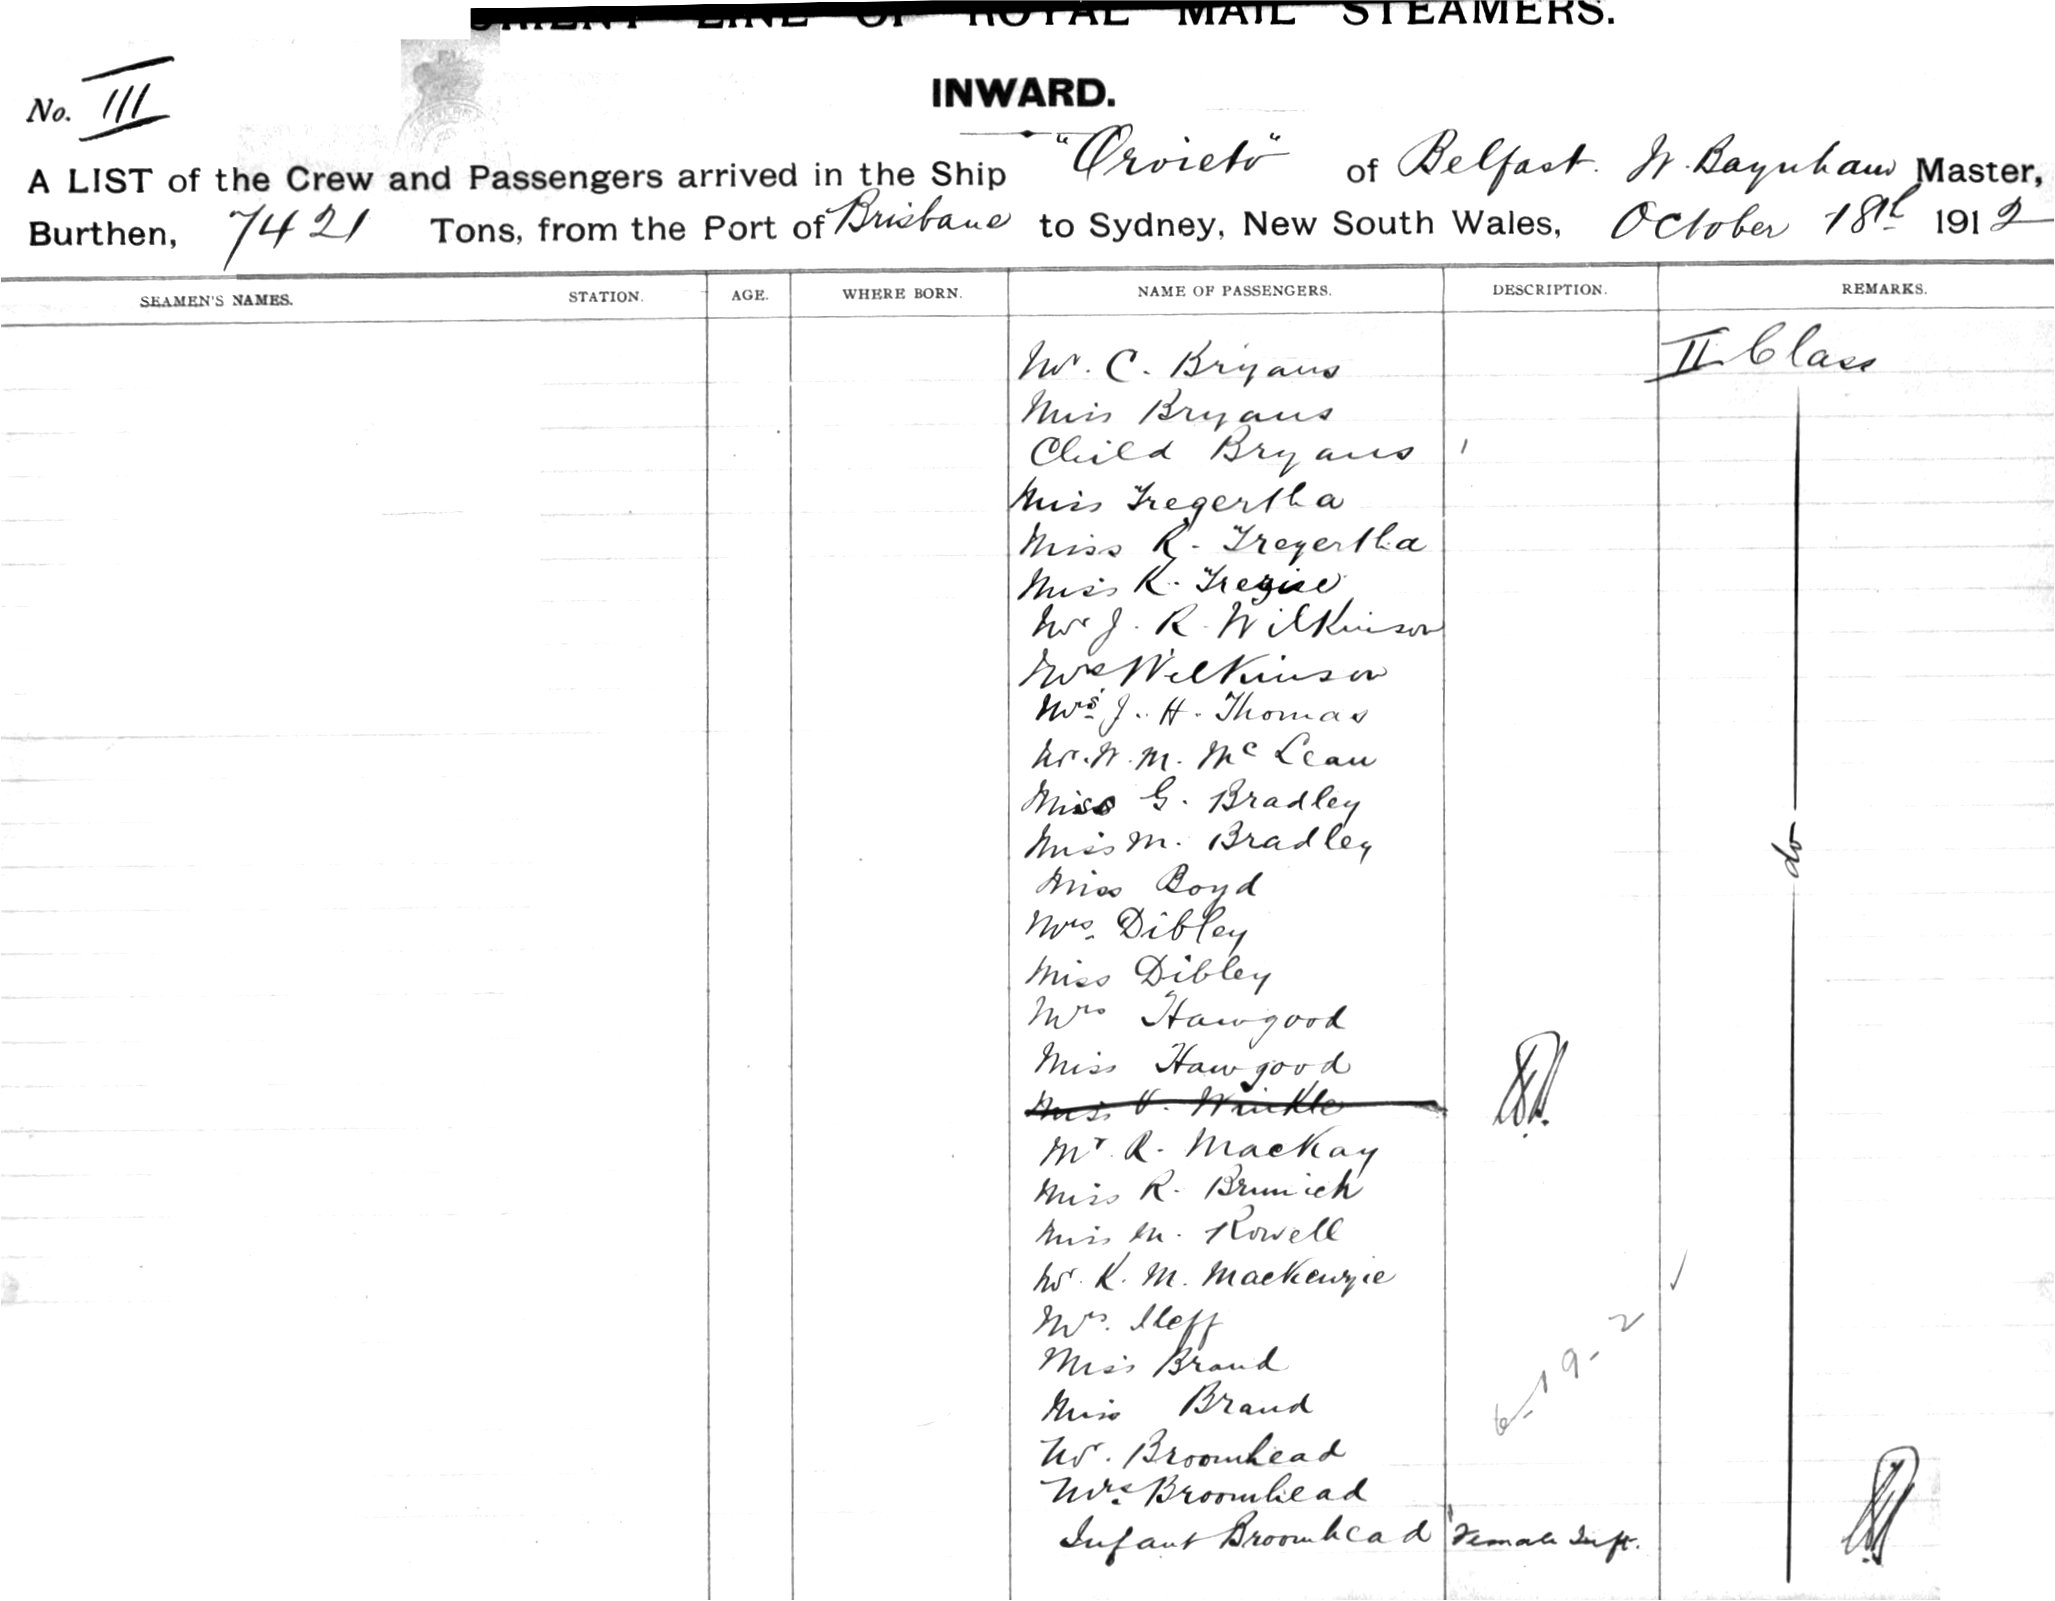 ORIENT LINE OF ROYAL MAIL STEAMERS.
No. III
INWARD.
A LIST of the Crew and Passengers arrived in the Ship "Orvieto" of Belfast. W. Baynham Master,
Burthen, 7421 Tons, from the Port of Brisbane to Sydney, New South Wales, October 18th 1912
SEAMEN'S NAMES. STATION. AGE. WHERE BORN. NAME OF PASSENGERS. DESCRIPTION. REMARKS.
Mr. C. Bryans II Class
Miss Bryans
Child Bryans 1
Miss Tregertha
Miss R. Tregertha
Miss K. Tregise
Mr J. R. Wilkinson
Mrs Wilkinson
Mrs. J. H. Thomas
Mr. W. M. McLean
Miss G. Bradley
Miss M. Bradley do
Miss Boyd
Mrs. Dibley
Miss Dibley
Mrs Hawgood
Miss Hawgood
Miss V. Winkle
Mr. R. MacKay
Miss R. Brunich
Miss M. Rowell
Mr. K. M. MacKenzie
Mrs.
Miss Brand
Miss Brand
Mr. Broomhead
Mrs. Broomhead
Infant Broomhead 1 Female Inft.